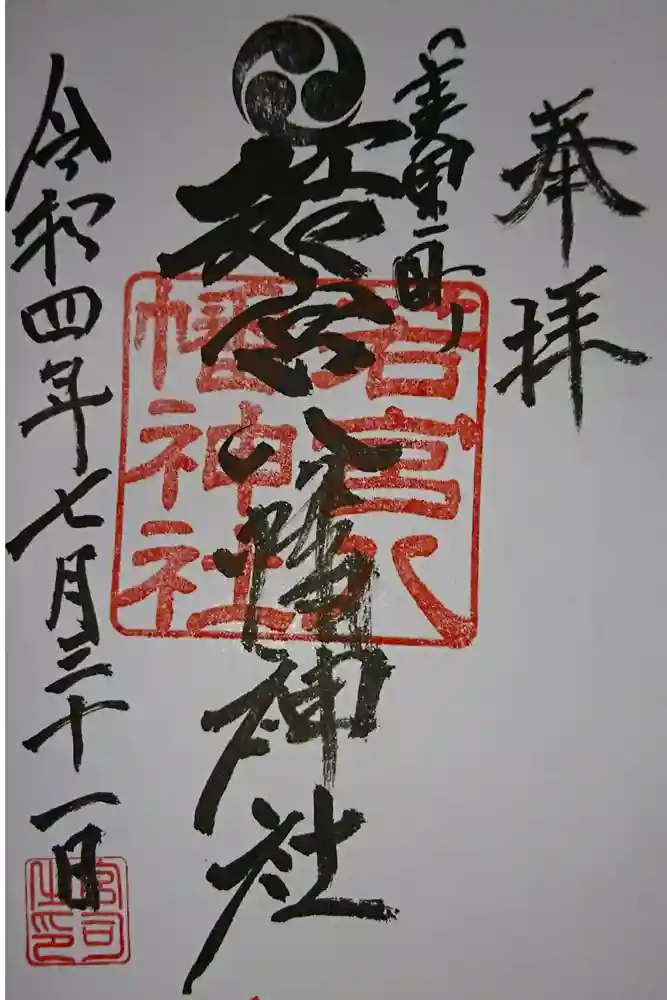 奉拝
若宮八幡神社
若宮八
幡神社
令和四年七月三十一日
宮司
之印